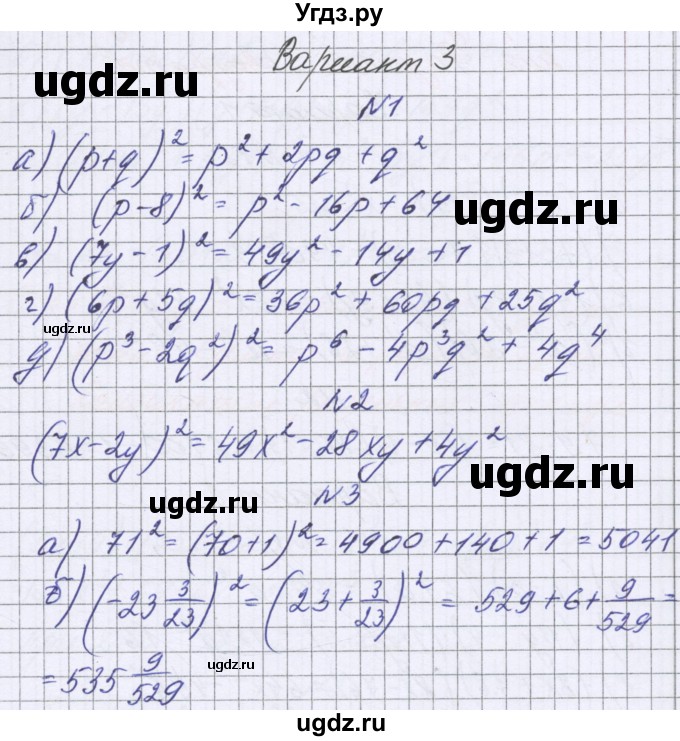 Угдз.ру
Вариант 3
ugdz.ru
N1
а) (p+q)² = p² + 2pq + q²
б) (p-8)² = p² - 16p + 64
ugdz.ru
в) (7y-1)² = 49y² - 14y + 1
г) (6p+5q)² = 36p² + 60pq + 25q²
ugdz.ru
д) (p³-2q²)² = p⁶ - 4p³q² + 4q⁴
N2
(7x-2y)² = 49x² - 28xy + 4y²
ugdz.ru
N3
ugdz.ru
а) 71² = (70+1)² = 4900 + 140 + 1 = 5041
б) (-23 3/23)² = (23 + 3/23)² = 529 + 6 + 9/529 =
ugdz.ru
= 535 9/529
ugdz.ru